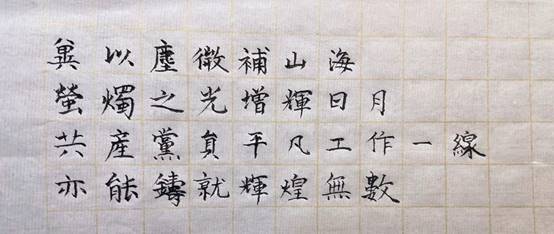 冀以塵微補山海
螢燭之光增輝日月
共產黨員平凡工作一線
亦能鑄就輝煌無數